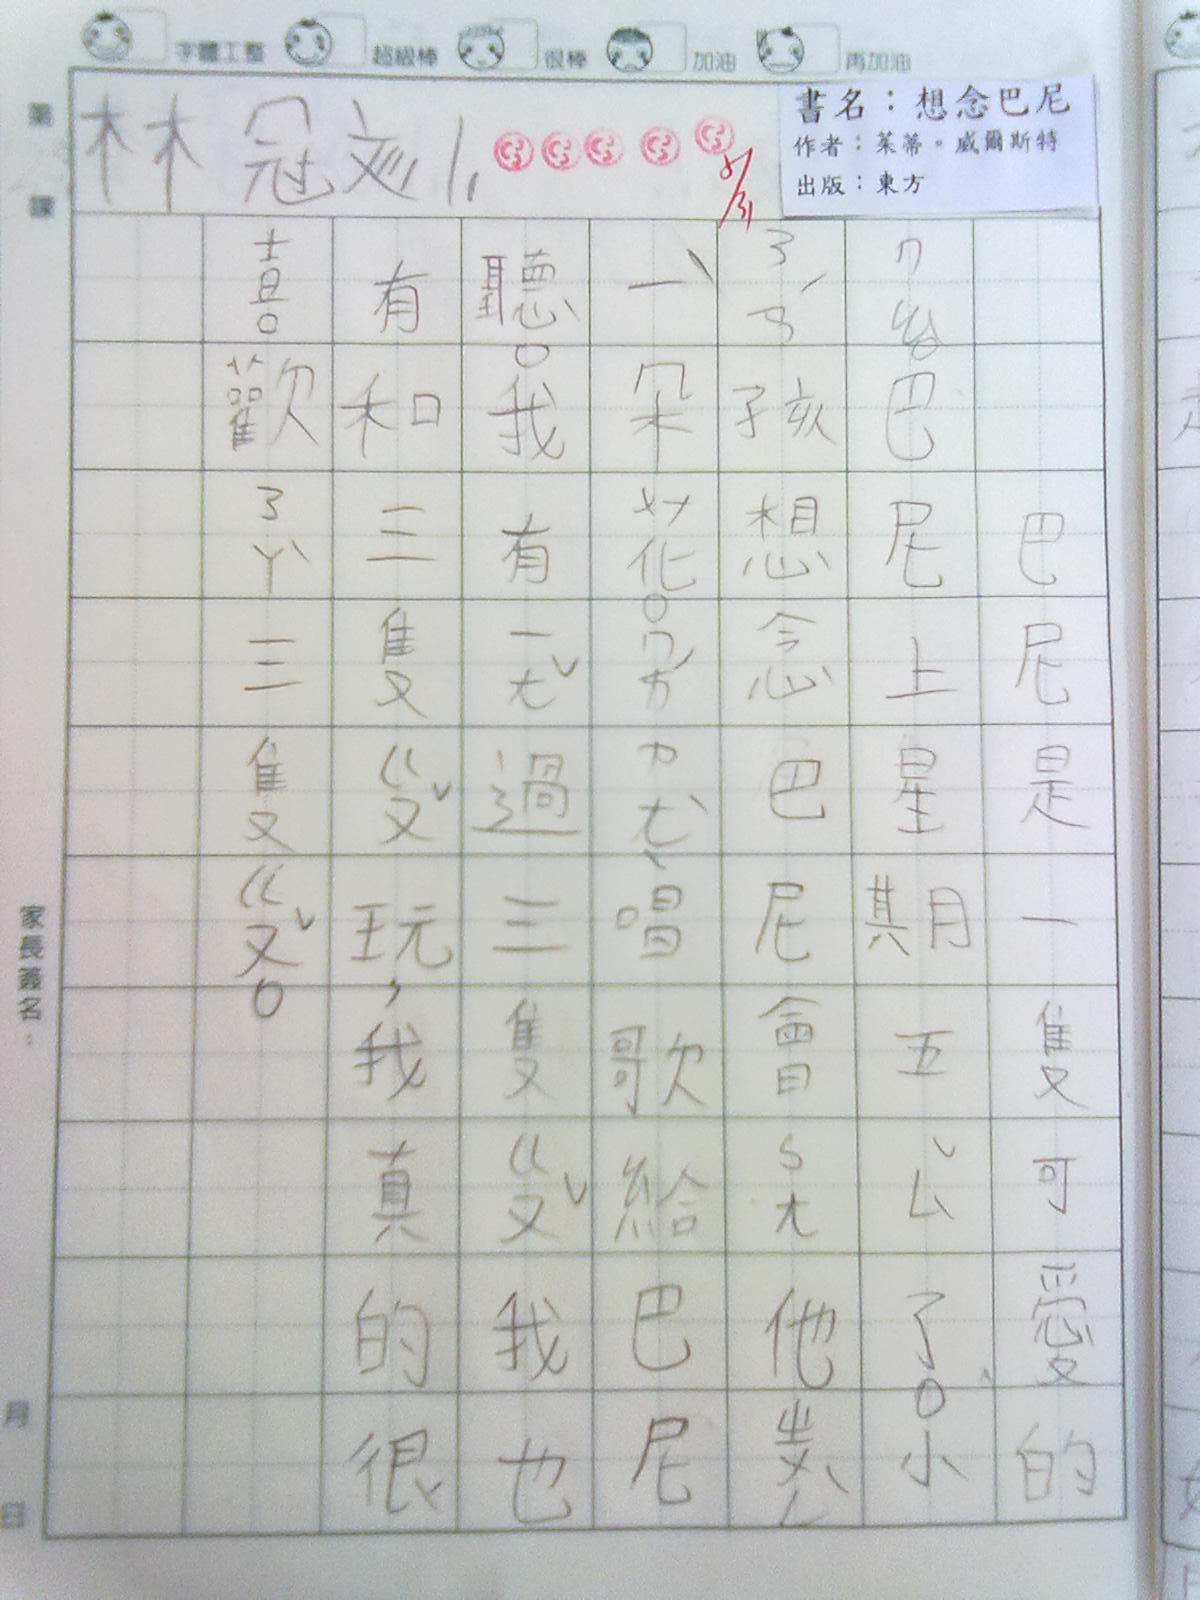 字體工整 超級棒 很棒 加油 再加油
第 課
林冠
書名：想念巴尼
作者：茱蒂。威爾斯特
出版：東方
8/31
巴尼是一隻可愛的
巴尼上星期五ㄙˇ了。小
ㄋㄢˊ孩想念巴尼會ㄅㄤ他
一ˋ朵花。唱歌給巴尼
聽。我有ㄧㄤˇ過三隻ㄍㄡˇ我也
有和三隻ㄍㄡˇ玩，我真的很
喜歡ㄋㄚˋ三隻ㄍㄡˇ。
家長簽名：
月 日